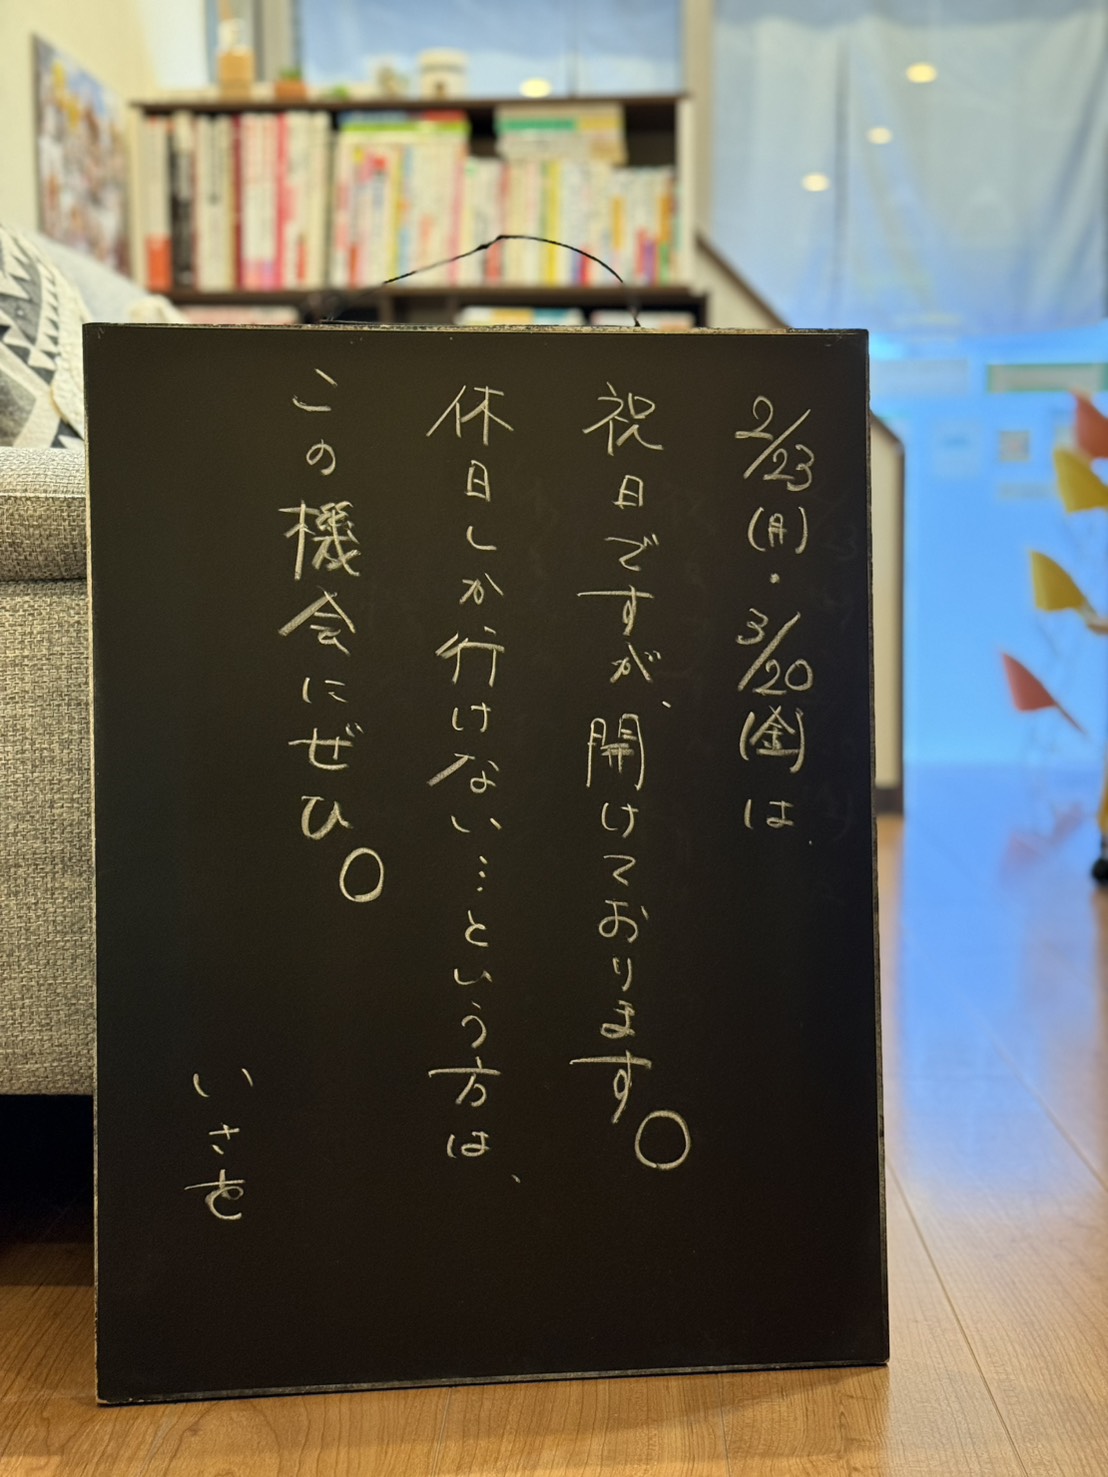 2/23(月)・3/20(金)は
祝日ですが、開けております。
休日しか行けない…という方は、
この機会にぜひ。
いさを